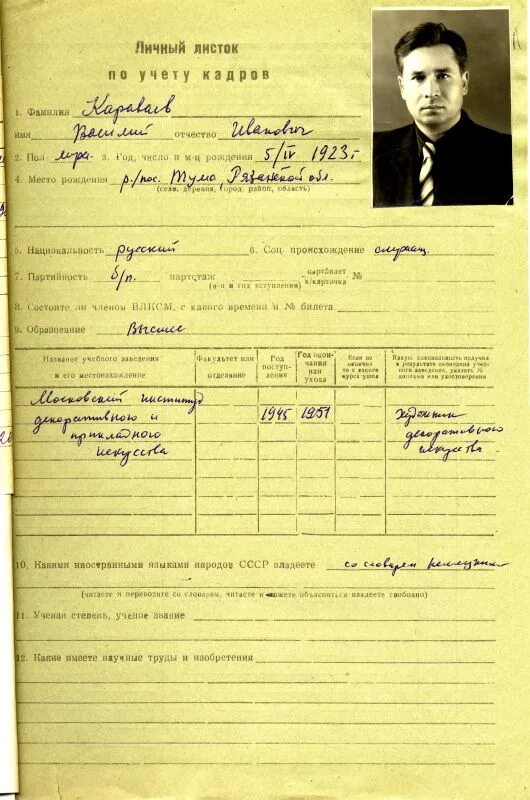 Личный листок
по учету кадров
1. Фамилия Караваев
имя Василий отчество Иванович
2. Пол муж. 3. Год, число и м-ц рождения 5/IV 1923 г
4. Место рождения р/пос. Тума Рязанской обл.
(село, деревня, город, район, область)
5. Национальность русский 6. Соц. происхождение служащ.
7. Партийность б/п. партстаж партбилет
(и-п м год вступления) к/карточка №
8. Состоите ли членом ВЛКСМ, с какого времени и № билета
9. Образование Высшее
Название учебного заведения и его местонахождение
Факультет или отделение
Год поступления
Год окончания или ухода
Если не окончил то с какого курса ушел
Какую специальность получил в результате окончания учебного заведения, указать № диплома или удостоверения
Московский институт
декоративного и 1945 1951 Художник
прикладного декоративного
искусства искусства
10. Какими иностранными языками народов СССР владеете со словарем немецким
(читаете и переводите со словарем, читаете и можете объясниться владеете свободно)
11. Ученая степень, ученое звание
12. Какие имеете научные труды и изобретения